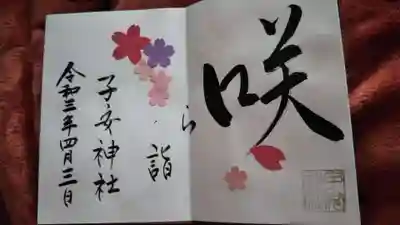 咲
ら
詣
子安神社
令和三年四月三日